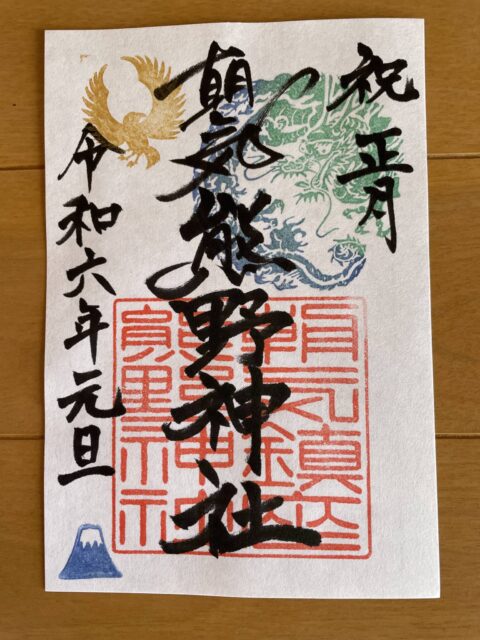 祝 正月
朝気熊野神社
令和六年元旦